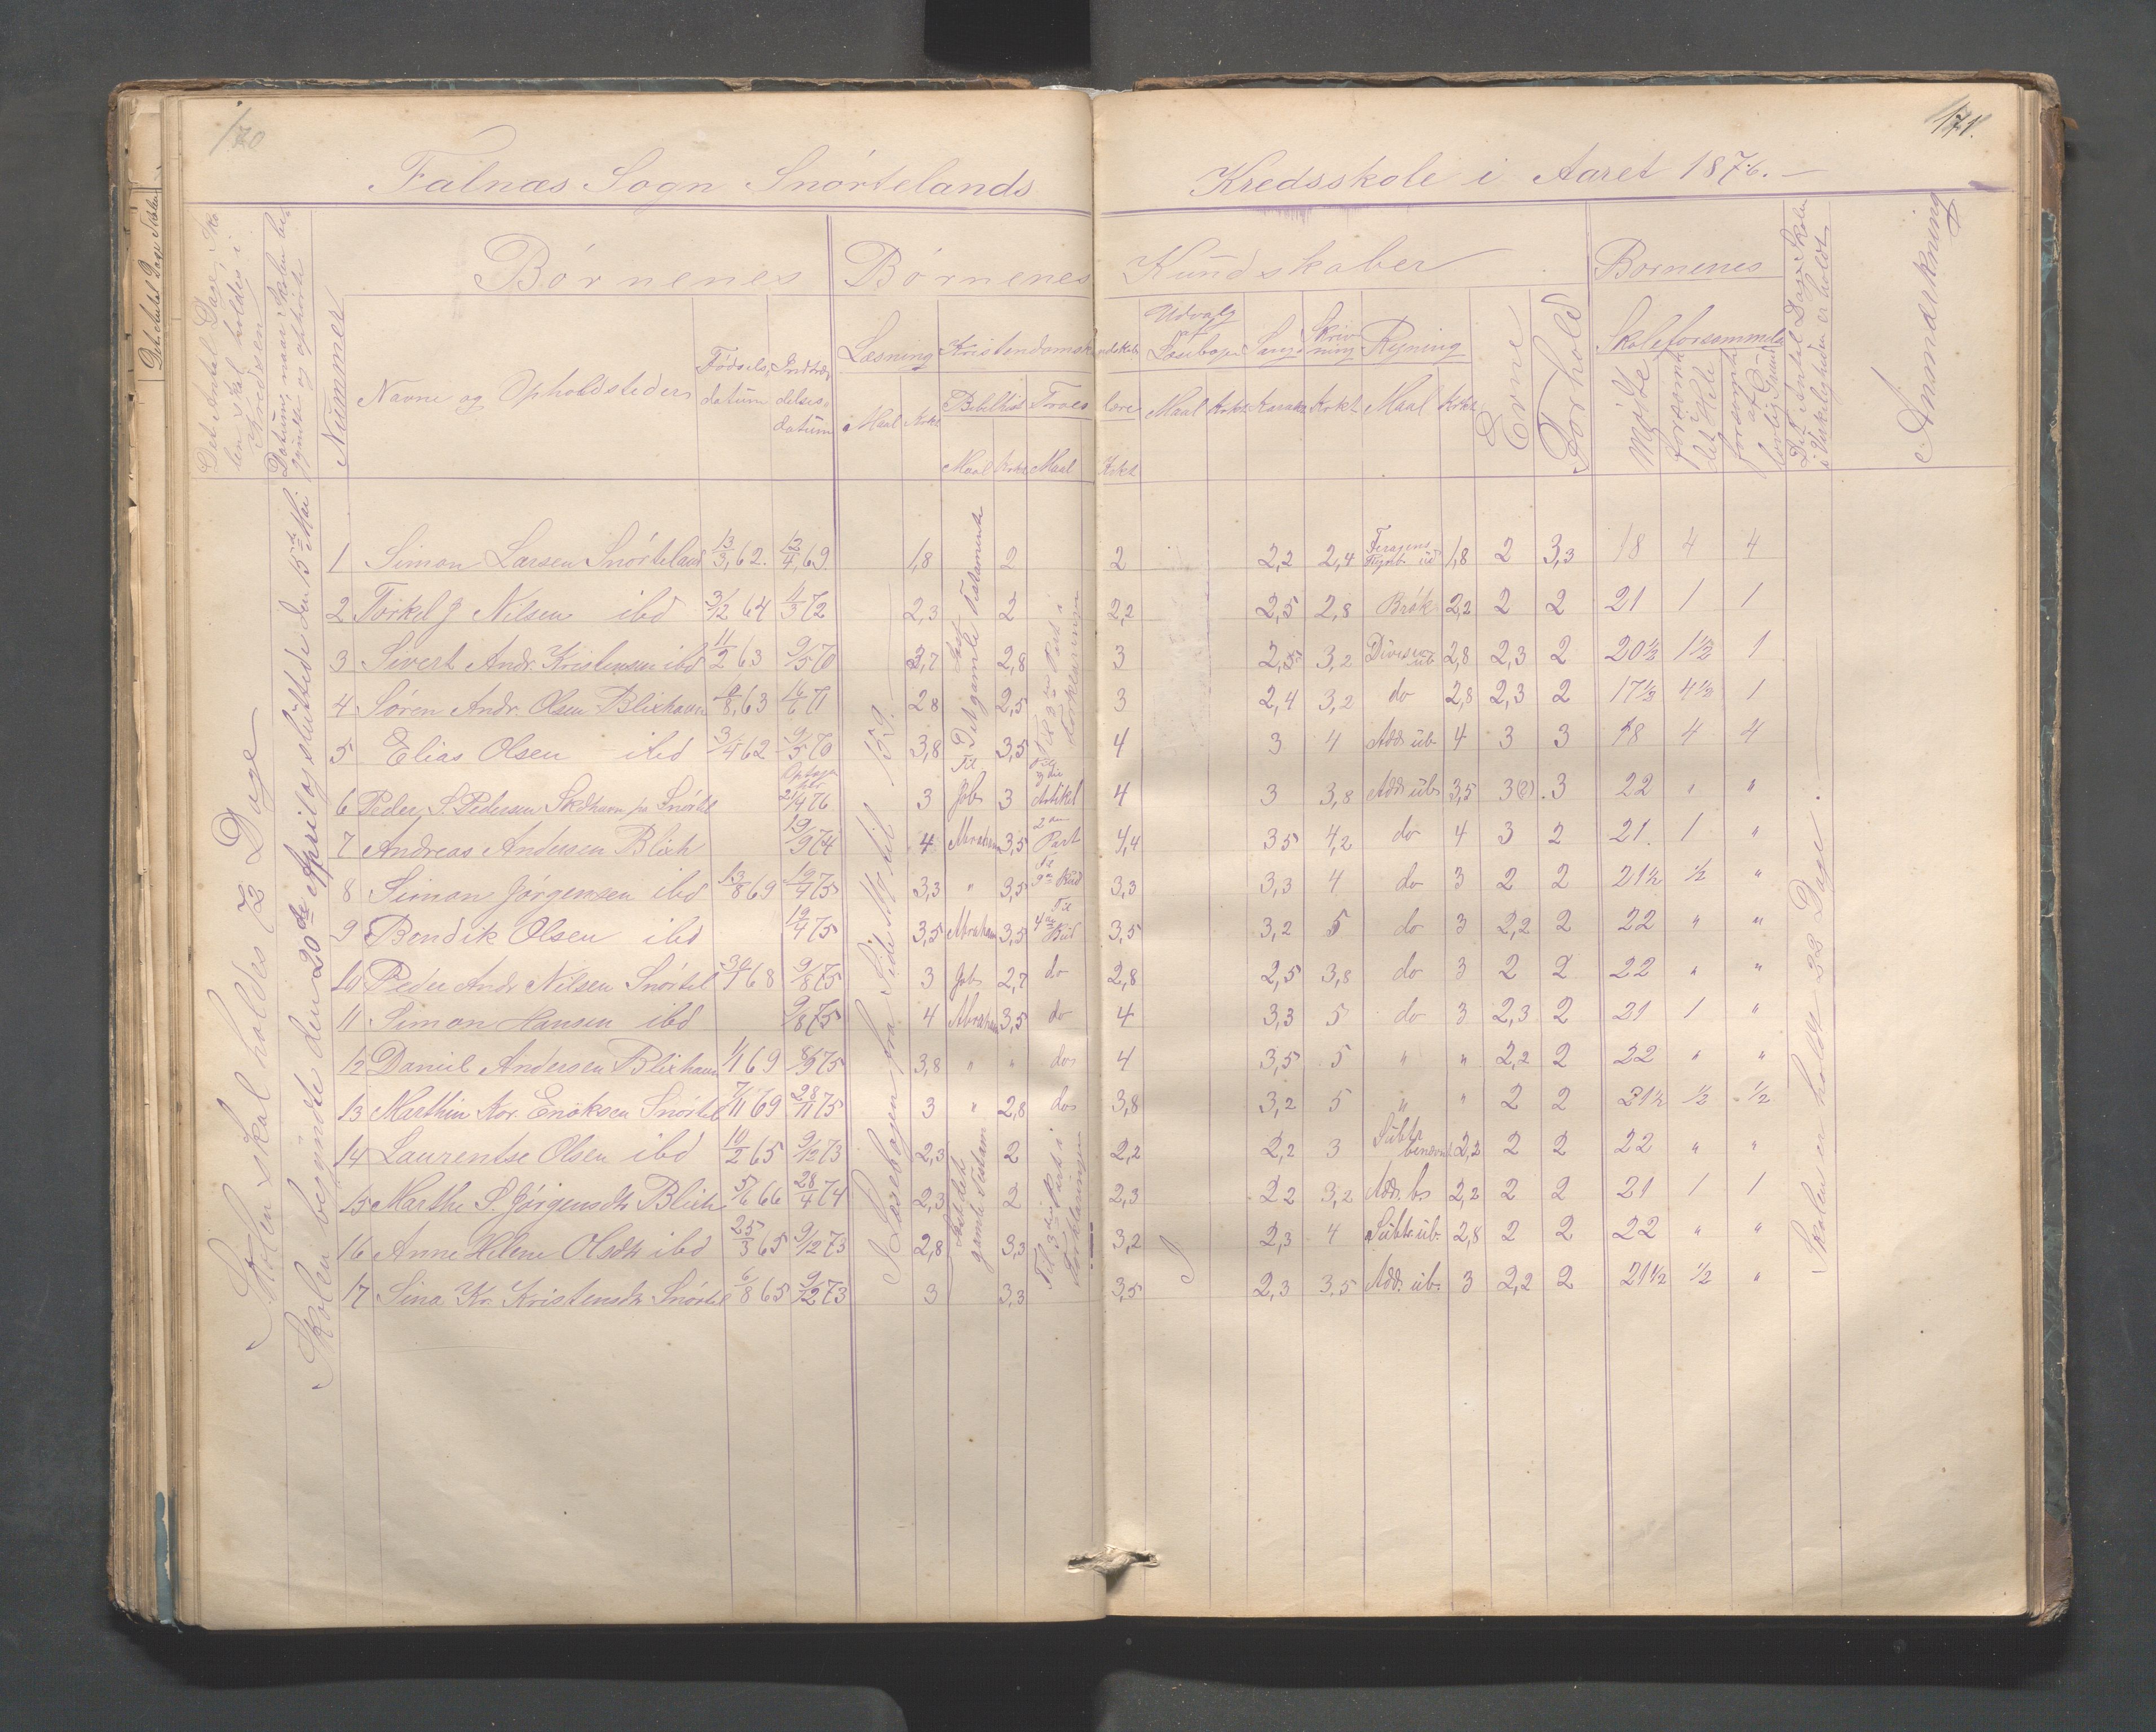 170
171.
Falnæs Sogn Snørtelands Kredsskole i Aaret 1876.
Børnenes Børnenes Kundskaber Børnenes
Det Antal Dage, Sko
len skal holdes i
Kredsen
Datum, naar Skolen be
gyndte og ophørte
Nummer
Navne og Opholdssteder
Fødsels datum
Indtræ delses datum
Læsning
Maal Krkt
Kristendomskundskab
Bibelhist Troes lære
Maal Krkt Maal Krkt
Udvalg af Læsebogen
Maal Krkt
Sang Karakt
Skriv ning Krkt
Regning
Maal Krkt
Evne
Forhold
Skoleforsømmelse
Mødte
forsømte i det Hele
forsømte af lovlig Grund
Det Antal Dage Skolen
i Virkeligheden er holdt
Anmærkning
Skolen skal holdes 72 Dage
Skolen begyndte den 20de April og sluttede den 15de Mai
I Læsebogen fra Side 119 til 159.
Til Det gamle Testamente
Til 3die Part i Forklaringen
1 Simon Larsen Snørteland 13/3 62. 13/4 69 1,8 2 2 2,2 2,4 1,8 2 3,3 18 4 4
2 Torkel J Nilsen ibd 31/12 64 4/3 72 2,3 2 2,2 2,5 2,8 Brøk 2,2 2 2 21 1 1
3 Sivert Andr. Kristensen ibd 11/2 63 9/5 70 2,7 2,8 3 2,5 3,2 Division üb 2,8 2,3 2 20½ 1½ 1
4 Søren Andr. Olsen Blixhavn 6/8 63 16/6 71 2,8 2,5 3 2,4 3,2 do 2,8 2,3 2 17½ 4½ 1
5 Elias Olsen ibd 3/4 62 9/5 70 3,8 3,5 4 3 4 Add. üb. 4 3 3 18 4 4
6 Peder S. Pedersen Skedhavn Snørtel 21/4 76 3 Jobs 3 Artikel 4 3 3,8 Add üb 3,5 3(2) 3 22 " "
7 Andreas Andersen Blixh 19/9 74 4 Abraham 3,5 2den Part 4,4 3,5 4,2 do 4 3 2 21. 1 "
8 Simon Jørgensen ibd 13/8 69 19/4 75 3,3 " 3,5 Til 9de Bud 3,3 3,3 4 do 3 2 2 21½ ½ "
9 Bendik Olsen ibd 19/4 75 3,5 Abraham 3,5 Til 4de Bud 3,5 3,2 5 do 3 2,2 2 22 " "
10 Peder Andr Nilsen Snørtel 30/1 68 9/8 75 3 Jobs 2,7 do 2,8 2,5 3,8 do 3 2 2 22 " "
11 Simon Hansen ibd 9/8 75 4 Abraham 3,5 do 4 3,3 5 do 3 2,3 2 21 1 "
12 Daniel Andersen Blixhavn 1/11 69 8/9 75 3,8 " " do 4 3,5 5 " " 2,2 2 22 " "
13 Marthin Nor. Enoksen Snørtel 7/11 69 28/11 75 3 " 2,8 do 3,8 3,2 5 " " 2 2 21½ ½ ½
14 Laurentse Olsen ibd 10/2 65 9/12 73 2,3 2 2,2 2,2 3 Subtr benævnt 2,2 2 2 22 " "
15 Marthe S. Jørgensdtr Blixh 5/6 66 28/4 74 2,3 2 2,3 2,2 3,2 Add. b. 2,2 2 2 21 1 1
16 Anne Helene Olsdtr ibd 25/3 65 9/12 73 2,8 3,3 3,2 2,3 4 Subtr üb. 2,8 2 2 22 " "
17 Sina Kr. Kristensdtr Snørtel 6/8 65 9/12 73 3 3,3 3,5 2,3 3,5 Add. üb. 3 2,2 2 21½ ½ "
gamle Testam
Til 3die Part i Forklaringen
Skolen er holdt 22 Dage.